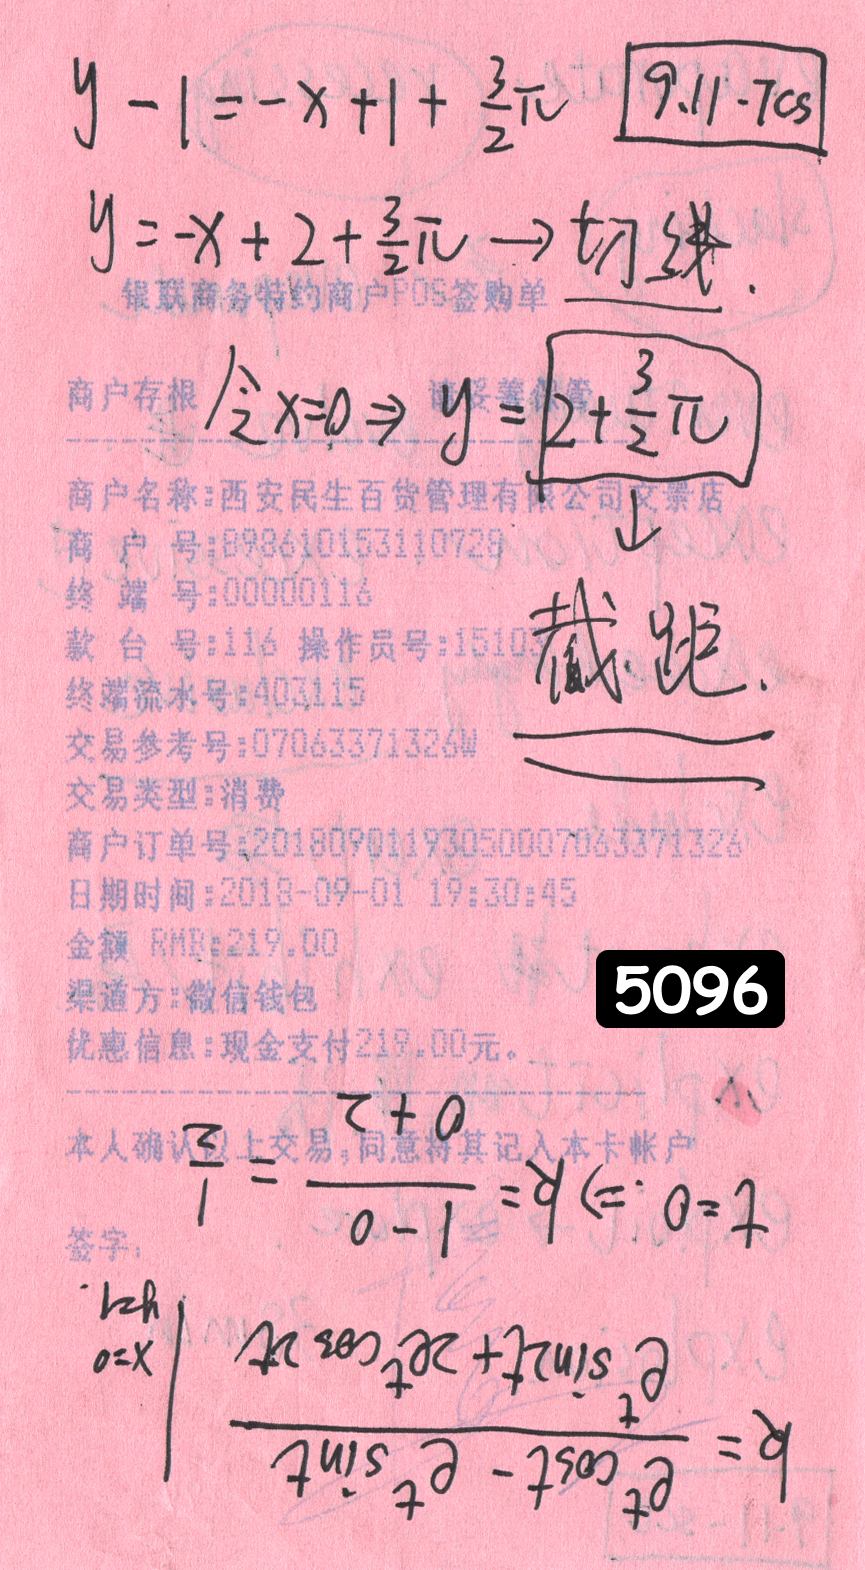 y - 1 = -x + 1 + 3/2 π
9.11-TCS
y = -x + 2 + 3/2 π → 切线.
银联商务特约商户POS签购单
商户存根 请妥善保管
令 x=0 ⇒ y = 2 + 3/2 π
商户名称:西安民生百货管理有限公司文景店
商 户 号:898610153110728
终 端 号:00000116
款 台 号:116 操作员号:15103
截距.
终端流水号:403115
交易参考号:07063371326W
交易类型:消费
商户订单号:20180901193050007063371326
日期时间:2018-09-01 19:30:45
金额 RMB:219.00
5096
渠道方:微信钱包
优惠信息:现金支付219.00元。
本人确认以上交易,同意将其记入本卡帐户
签字:
k = (e^t cost - e^t sint) / (e^t sin2t + 2e^t cos2t) | x=0 y=1.
t=0 ⇒ k = (1-0)/(0+2) = 1/2